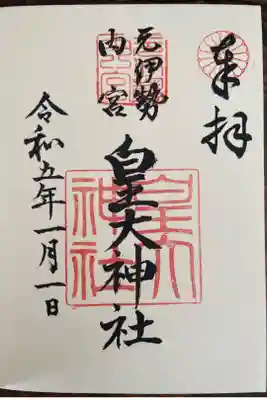 奉拝
元伊勢
内宮
皇大神社
令和五年一月一日
皇大
神社